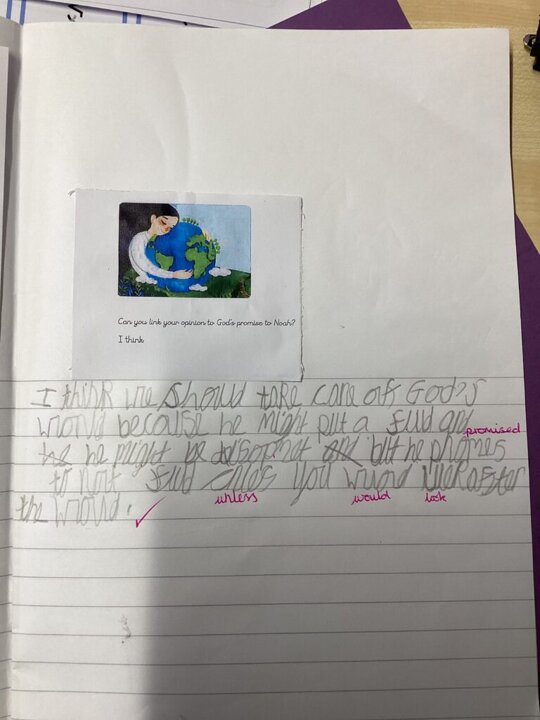 Can you link your opinion to God's promise to Noah?
I think
I think we should take care of God's
world because he might put a flud and
he he might be dalsopinot and but he promes promised
to not flud unless you wuord look after
unless would look
the world.